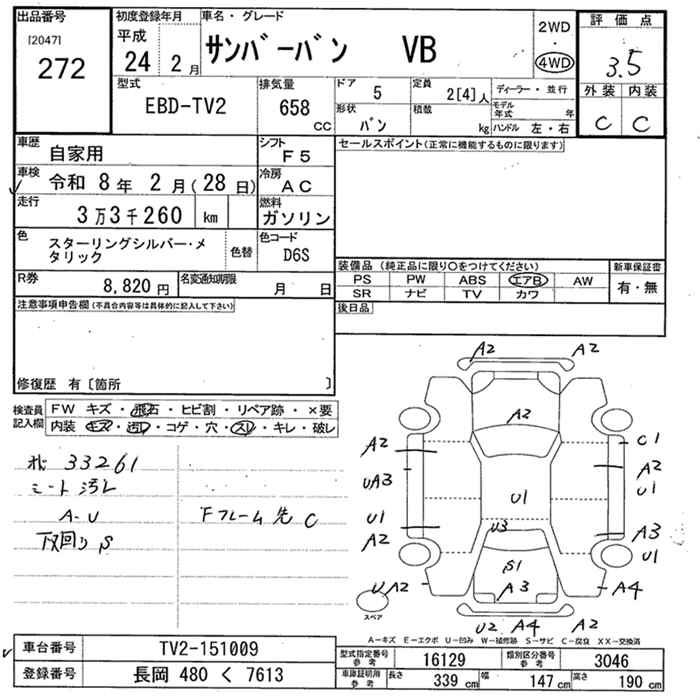 出品番号 初度登録年月 車名・グレード 2WD 評価点
[2047] 平成
272 24 2月 サンバーバン VB ・ 4WD 3.5
型式 排気量 ドア 5 定員 2[4]人 ディーラー・並行 外装 内装
EBD-TV2 658 cc 形状 バン 積載 kg モデル年式 年 C C
ハンドル 左・右
車歴 自家用 シフト F5 セールスポイント(正常に機能するものに限ります)
車検 令和 8年 2月(28日) 冷房 AC
走行 3万3千260 km 燃料 ガソリン
色 スターリングシルバー・メタリック 色替 色コード D6S
装備品(純正品に限り〇をつけてください) 新車保証書
R券 8,820円 名変通知期限 月 日 PS PW ABS エアB AW 有・無
SR ナビ TV カワ
注意事項申告欄(不具合内容等は具体的に記入して下さい) 後日品
修復歴 有〔箇所 〕
検査員記入欄 FW キズ・飛石・ヒビ割・リペア跡・×要
内装 キズ・汚レ・コゲ・穴・スレ・キレ・破レ
33261
シート汚レ
A-U Fフレーム先C
下回りS
A2 A2
A2
A2 C1
UA3 A2
U1 U1 U1
A2 U3 A3
S1 U1
UA2 A3 A4
スペア
U2 A4 A2
A-キズ E-エクボ U-凹み W-補修跡 S-サビ C-腐食 XX-交換済
車台番号 TV2-151009
登録番号 長岡 480 く 7613
型式指定番号 参考 16129 類別区分番号 参考 3046
車庫証明用 参考 長さ 339 cm 幅 147 cm 高さ 190 cm